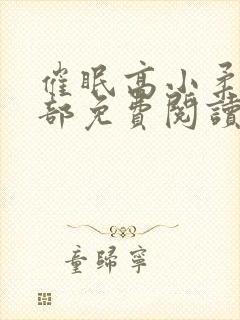 催眠高小柔
部免費閱讀
童歸寧